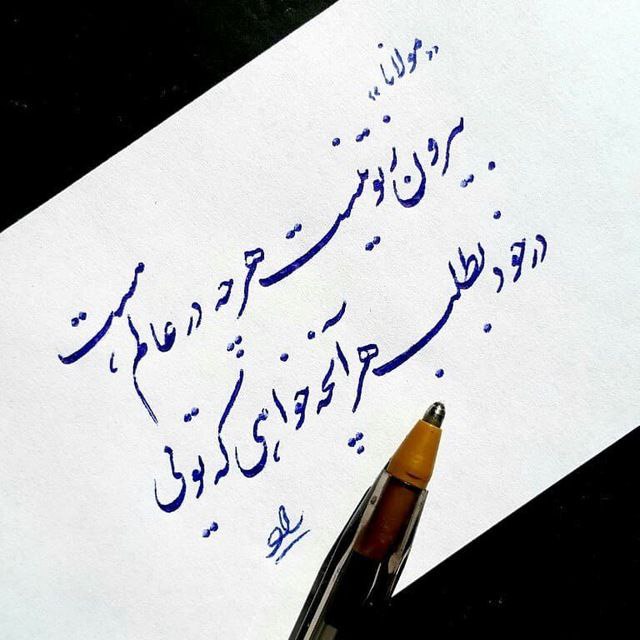 "مولانا"
بیرون ز تو نیست هرچه در عالم هست
در خود بطلب هر آنچه خواهی که تویی